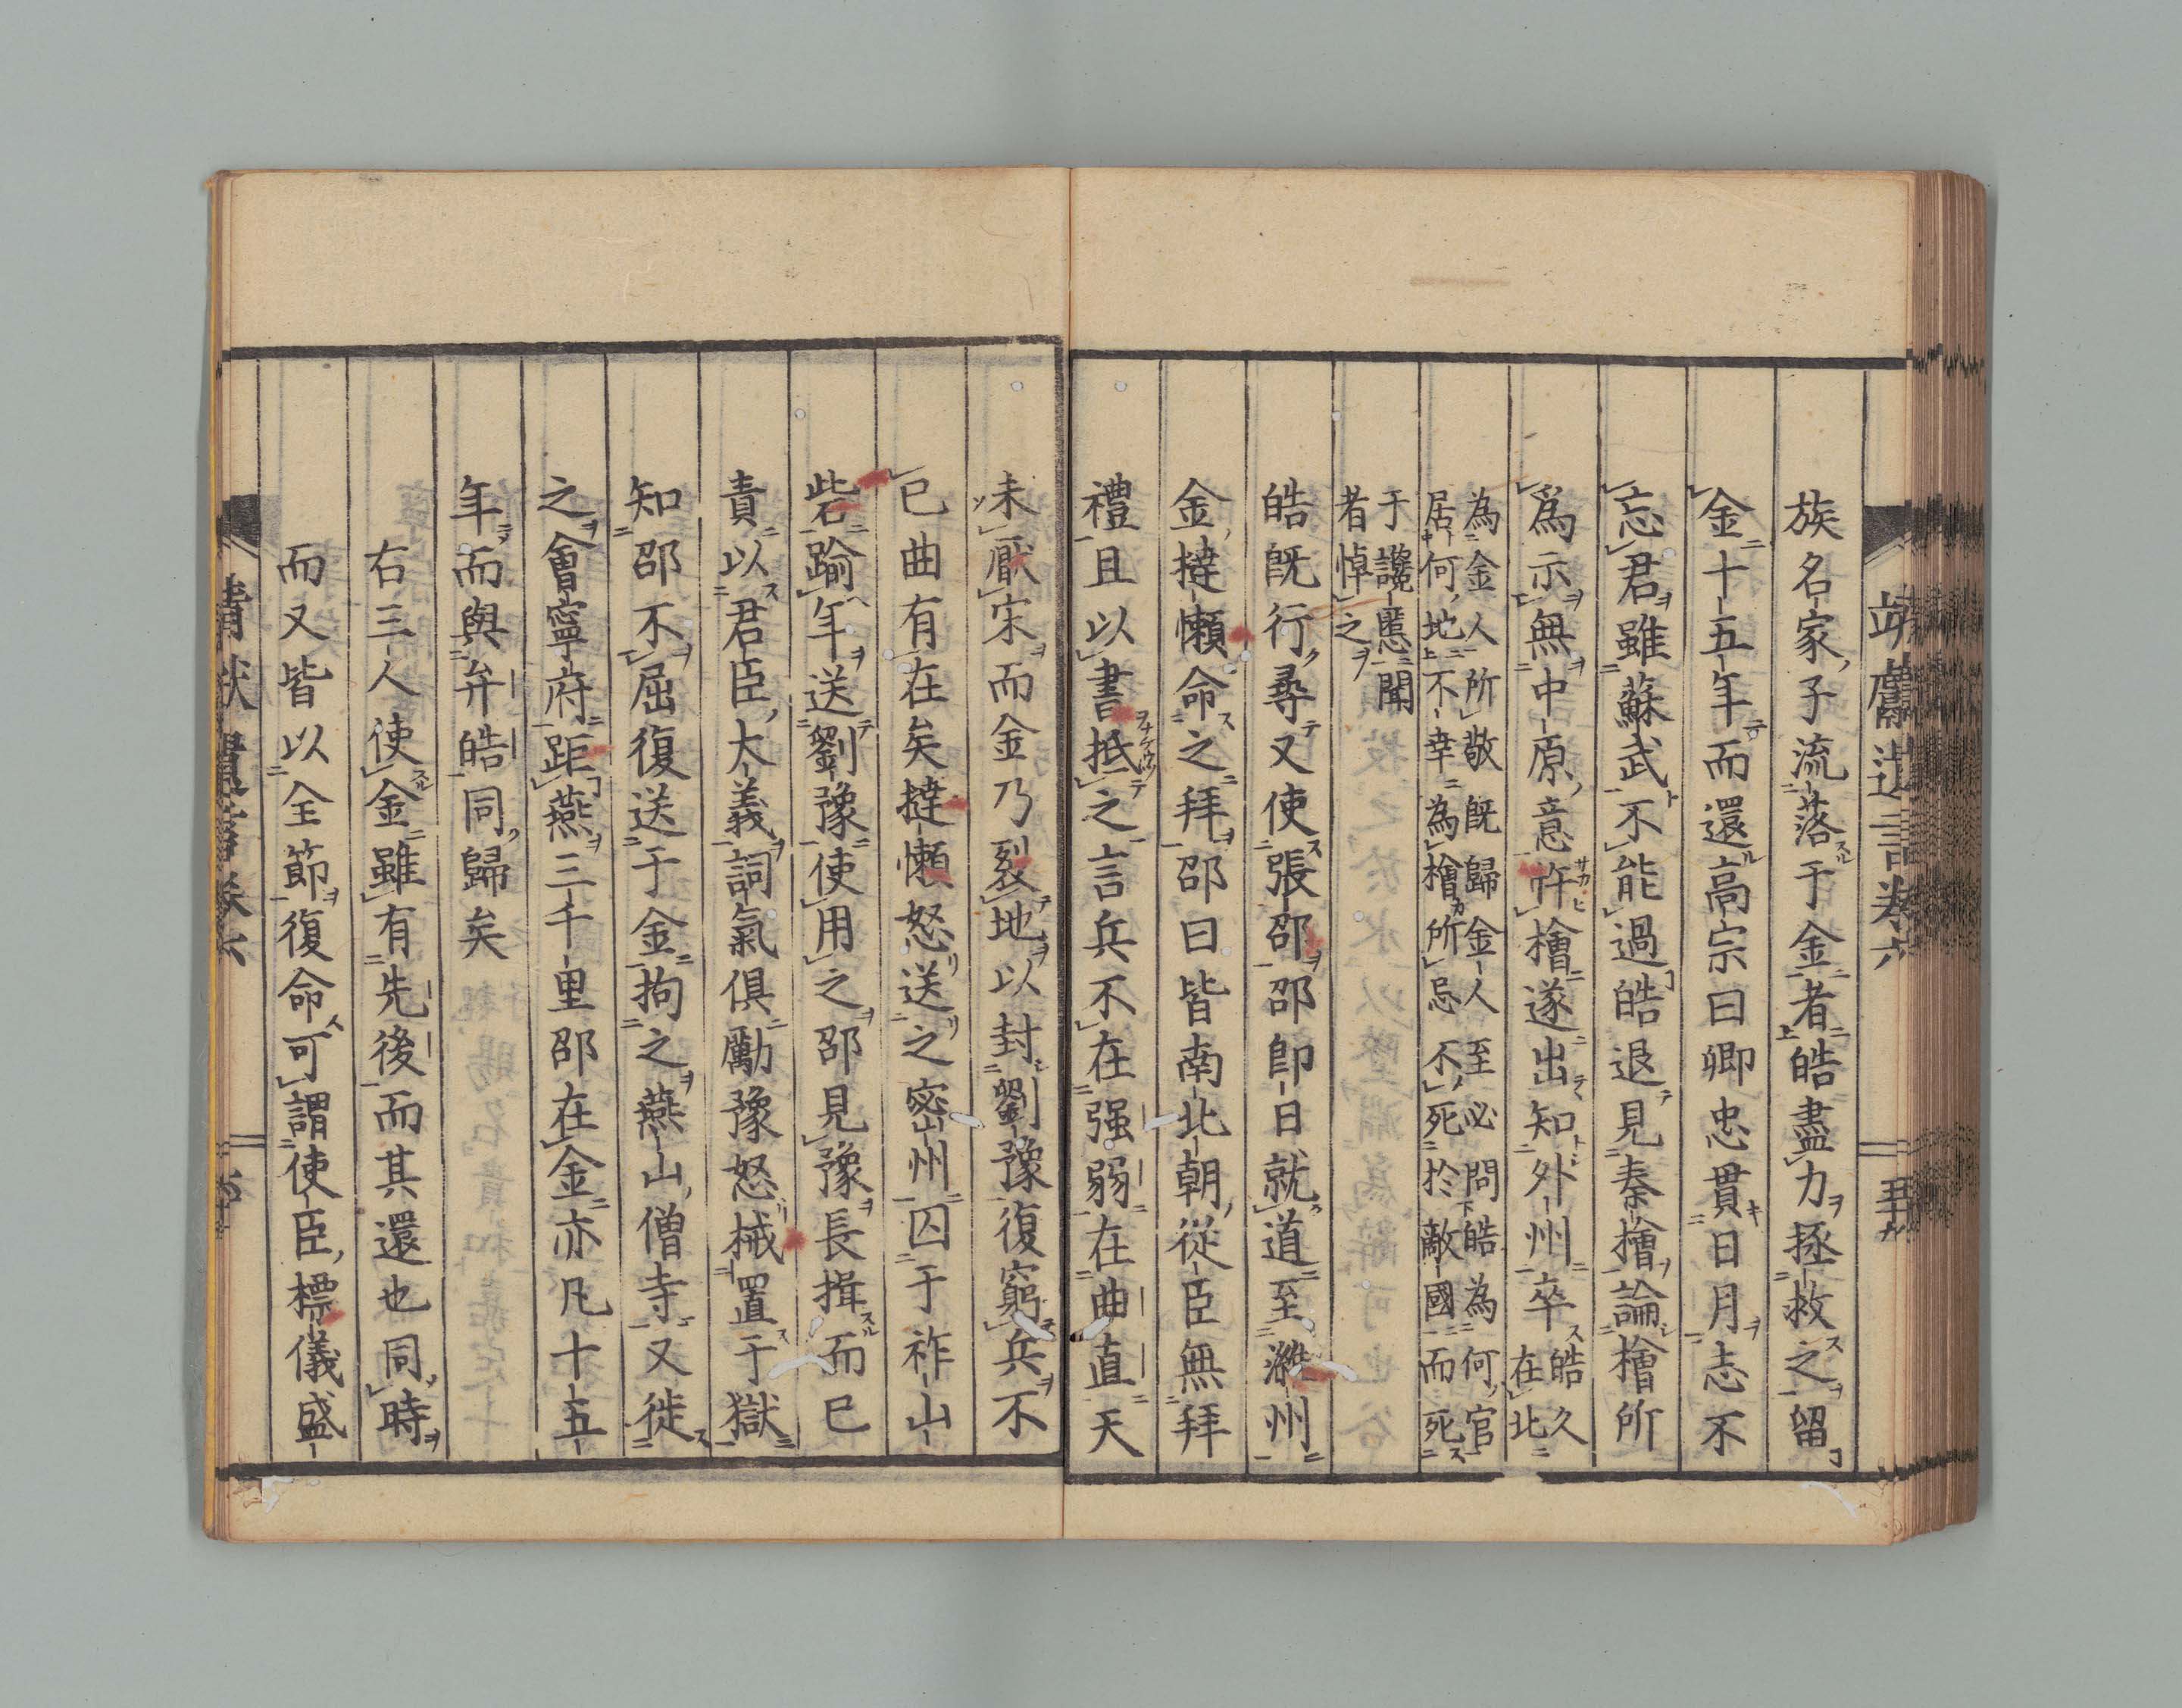 靖獻遺言卷六
族名家子流落于金者皓盡力拯救之留
金十五年而還高宗曰卿忠貫日月志不
忘君雖蘇武不能過皓退見秦檜論檜所
爲示無中原意忤檜遂出知外州卒皓久在北
為金人所敬既歸金人至必問皓為何官
居何地不幸為檜所忌不死於敵國而死
于讒慝聞
者悼之
皓既行尋又使張邵邵即日就道至濰州
金撻懶命之拜邵曰皆南北朝從臣無拜
禮且以書抵之言兵不在强弱在曲直天
未厭宋而金乃裂地以封劉豫復窮兵不
已曲有在矣撻懶怒送之密州囚于祚山
砦踰年送劉豫使用之邵見豫長揖而已
責以君臣大義詞氣俱勵豫怒械置于獄
知邵不屈復送于金拘之燕山僧寺又徙
之會寧府距燕三千里邵在金亦凡十五
年而與弁皓同歸矣
右三人使金雖有先後而其還也同時
而又皆以全節復命可謂使臣標儀盛